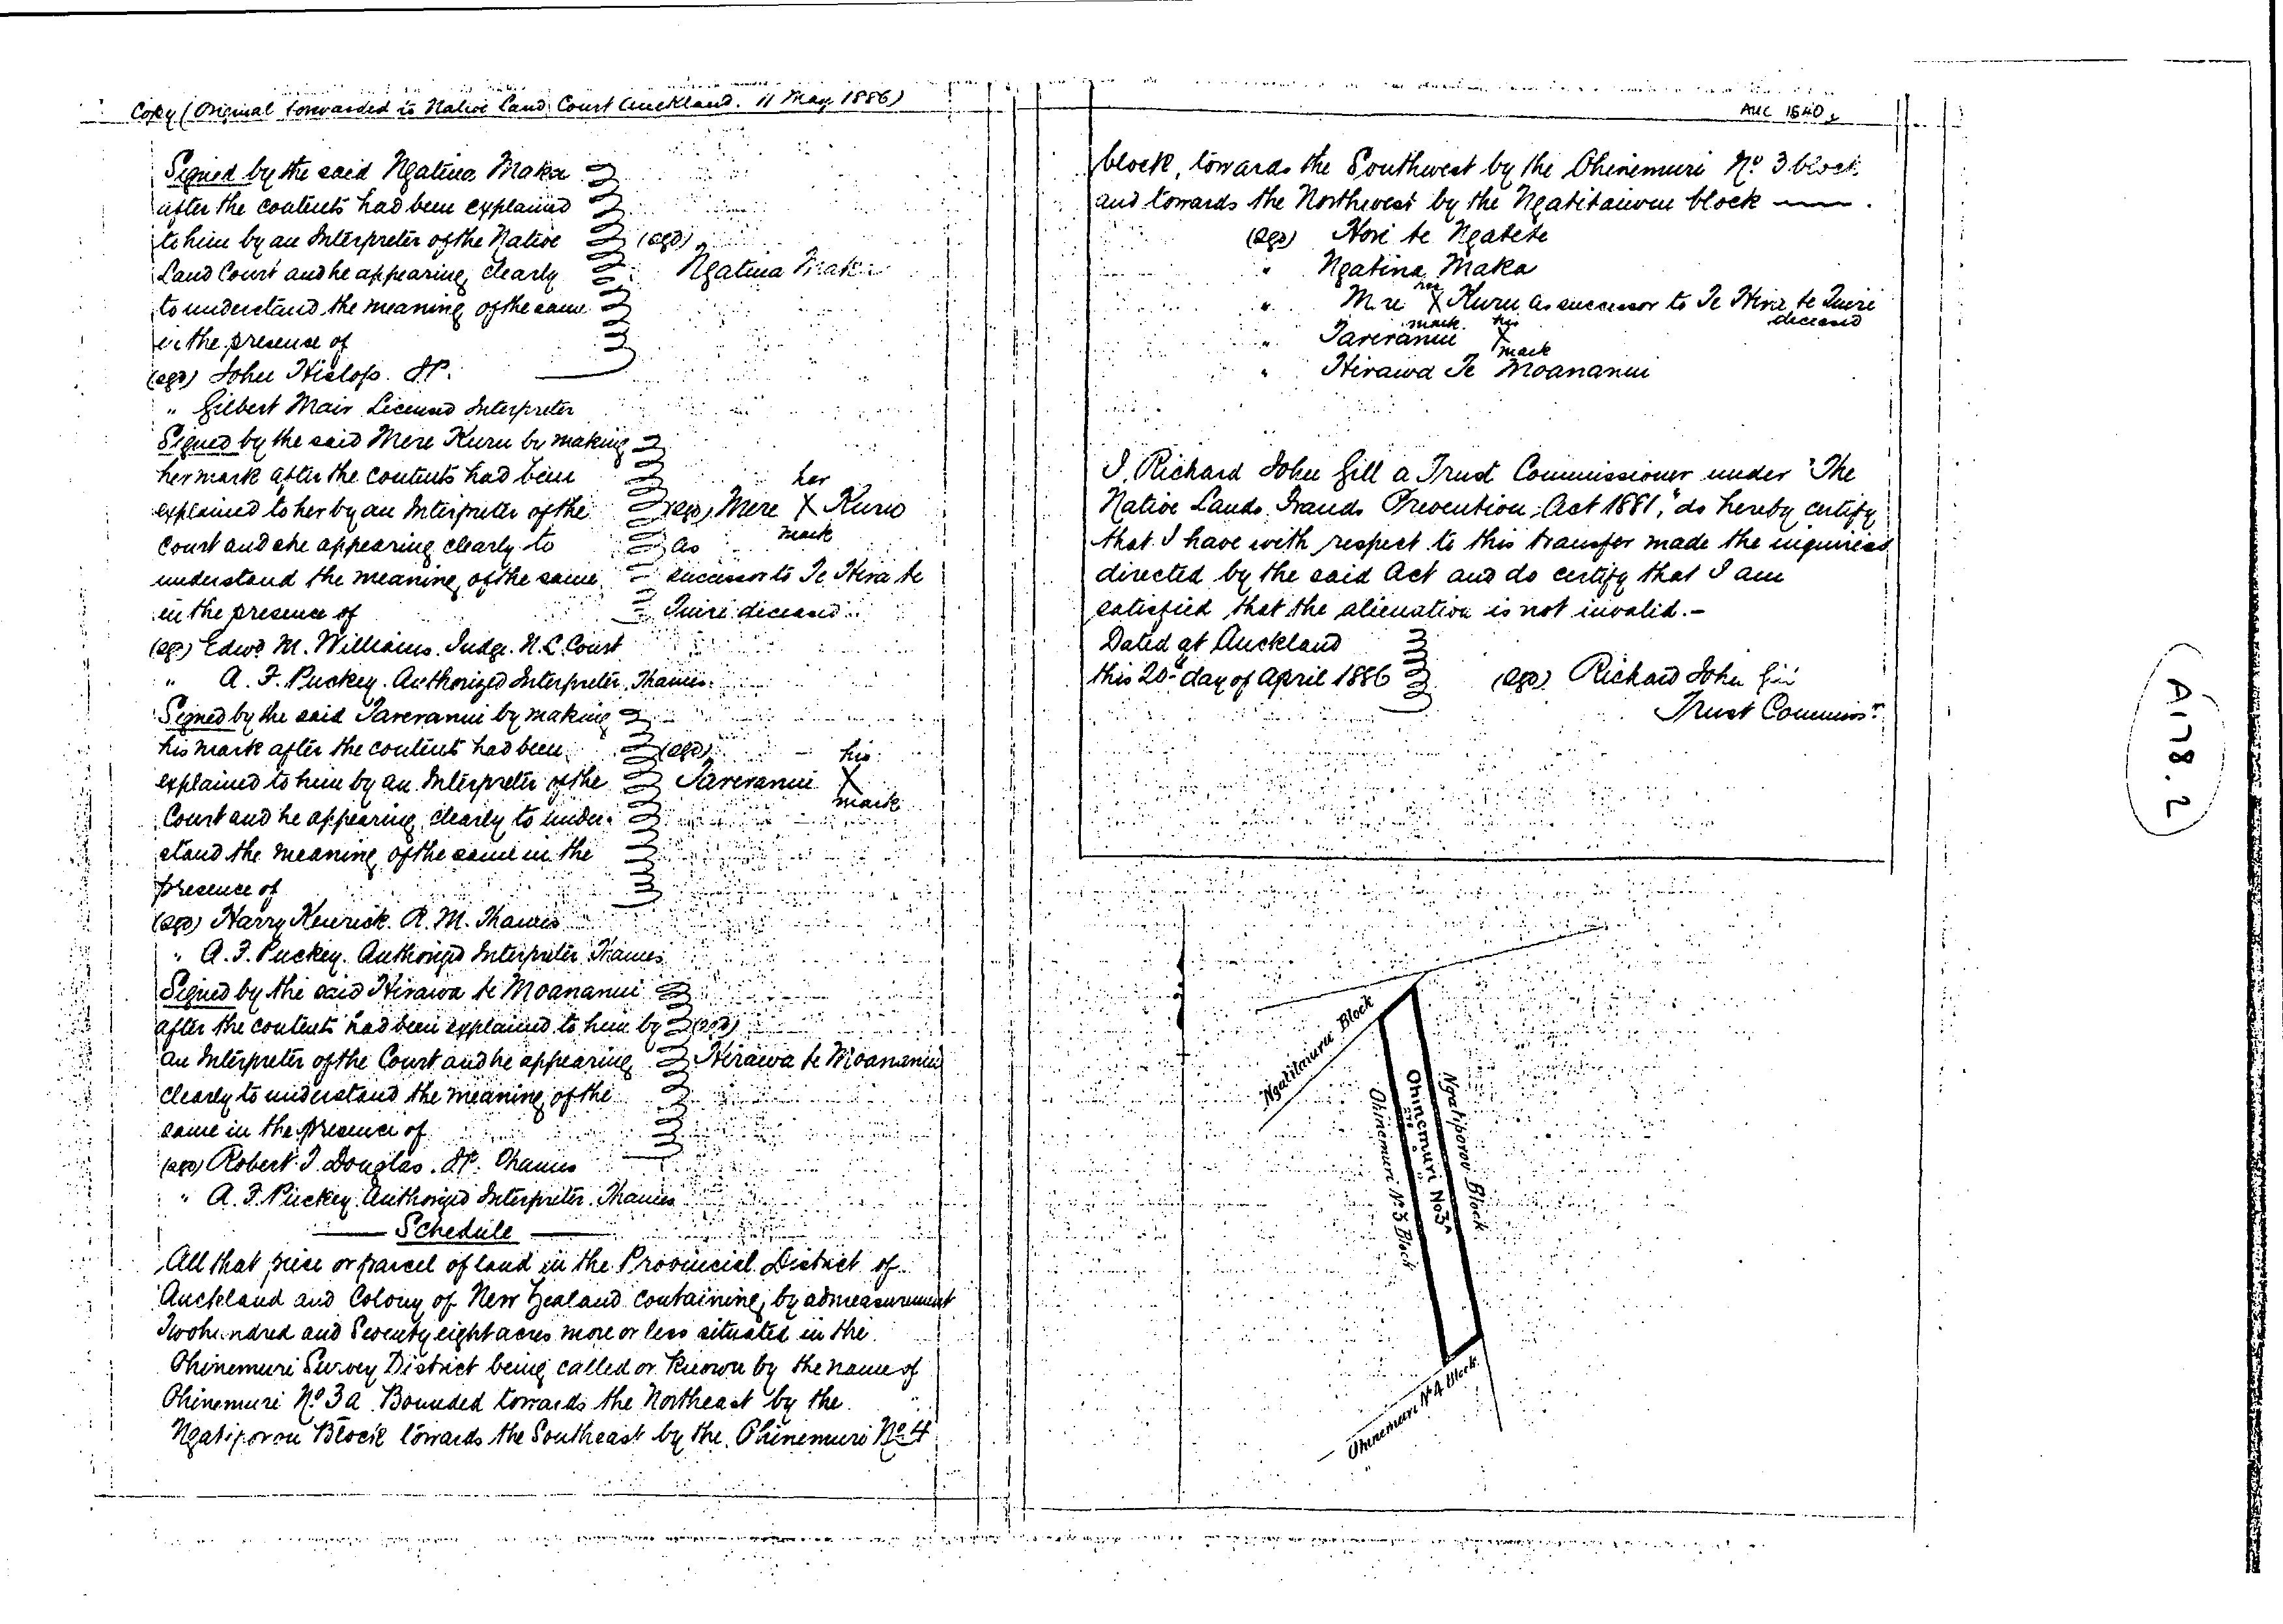 Copy (Original forwarded to Native Land Court Auckland. 11 May 1886)
Signed by the said Ngatina Maka
after the contents had been explained
to him by an Interpreter of the Native
(sgd)
Land Court and he appearing clearly
Ngatina Maka
to understand the meaning of the same
in the presence of
(sgd) John Hislop. JP.
" Gilbert Mair Licensed Interpreter
Signed by the said Mere Kuru by making
her mark after the contents had been
her
explained to her by an Interpreter of the
(sgd) Mere X Kuru
mark
Court and she appearing clearly to
as
understand the meaning of the same
successor to Te Hira te
in the presence of
Tuiri deceased
(sgd) Edwd M. Williams. Judge. N.L. Court
" A. F. Puckey. Authorized Interpreter. Thames.
Signed by the said Tareranui by making
his mark after the contents had been
(sgd) his
explained to him by an Interpreter of the
Tareranui X
mark
Court and he appearing clearly to under-
stand the meaning of the same in the
presence of
(sgd) Harry Kenrick. R. M. Thames
" A. F. Puckey. Authorized Interpreter. Thames
Signed by the said Hirawa te Moananui
after the contents had been explained to him by
(sgd)
an Interpreter of the Court and he appearing
Hirawa te Moananui
clearly to understand the meaning of the
same in the presence of
(sgd) Robert J. Douglas. JP. Thames
" A. F. Puckey. Authorized Interpreter. Thames
Schedule
All that piece or parcel of land in the Provincial District of
Auckland and Colony of New Zealand containing by admeasurement
Two hundred and Seventy eight acres more or less situated in the
Ohinemuri Survey District being called or known by the name of
Ohinemuri No 3a Bounded towards the Northeast by the
Ngatiporou Block towards the Southeast by the Ohinemuri No 4
AUC 1540
block, towards the Southwest by the Ohinemuri No 3 block
and towards the Northwest by the Ngatitauru block
(sgd) Hori te Ngatete
" Ngatina Maka
her
" Mere X Kuru as successor to Te Hira te Tuiri
mark deceased
his
" Tareranui X
mark
" Hirawa Te Moananui
I, Richard John Gill a Trust Commissioner under "The
Native Lands Frauds Prevention Act 1881," do hereby certify
that I have with respect to this transfer made the inquiries
directed by the said Act and do certify that I am
satisfied that the alienation is not invalid.-
Dated at Auckland
this 20th day of April 1886
(sgd) Richard John Gill
Trust Commissr
Ngatitauru Block
Ngatiporou Block
Ohinemuri No 3A
Ohinemuri No 3 Block
Ohinemuri No 4 Block
A178.2